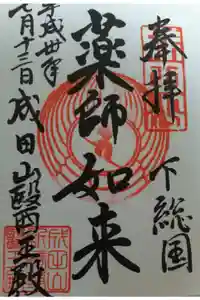 奉拝
下総国
薬師如来
平成卅年
月十三日
成田山醫王殿